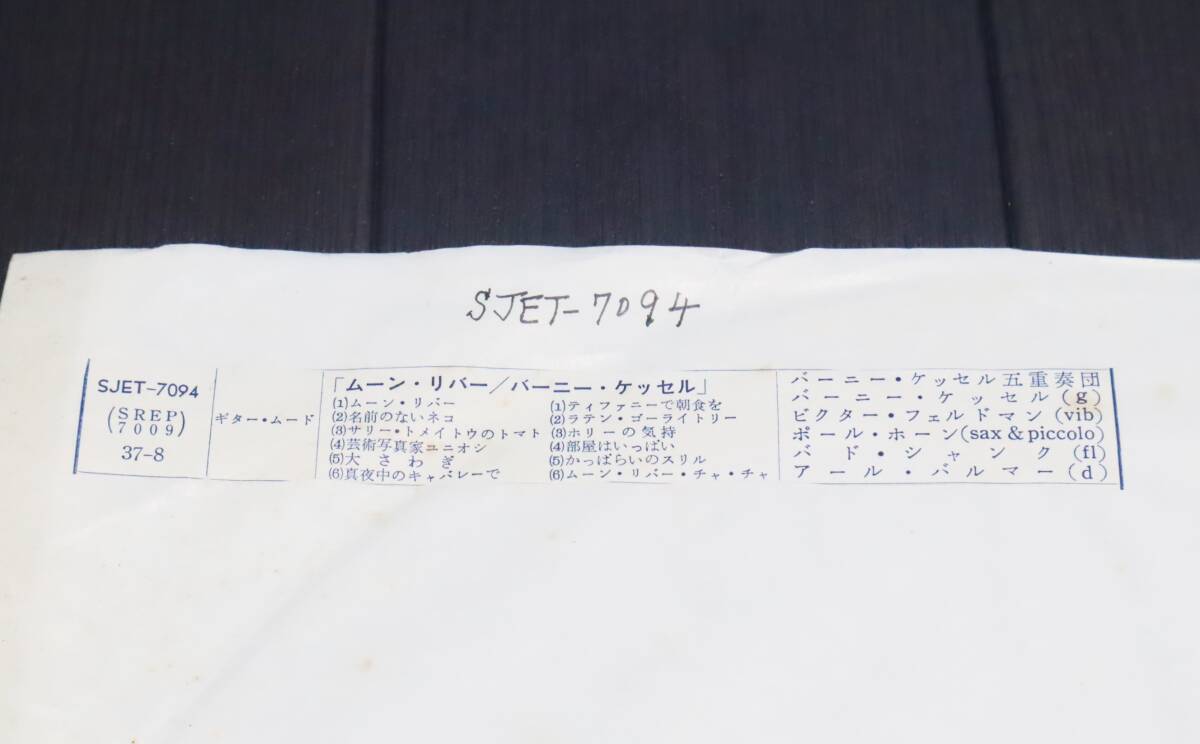 SJET-7094
SJET-7094
(SREP 7009)
37-8
ギター・ムード
「ムーン・リバー/バーニー・ケッセル」
(1)ムーン・リバー
(2)名前のないネコ
(3)サリー・トメイトウのトマト
(4)芸術写真家ユニオシ
(5)大さわぎ
(6)真夜中のキャバレーで
(1)ティファニーで朝食を
(2)ラテン・ゴーライトリー
(3)ホリーの気持
(4)部屋はいっぱい
(5)かっぱらいのスリル
(6)ムーン・リバー・チャ・チャ
バーニー・ケッセル五重奏団
バーニー・ケッセル(g)
ビクター・フェルドマン(vib)
ポール・ホーン(sax & piccolo)
バド・シャンク(fl)
アール・バルマー(d)